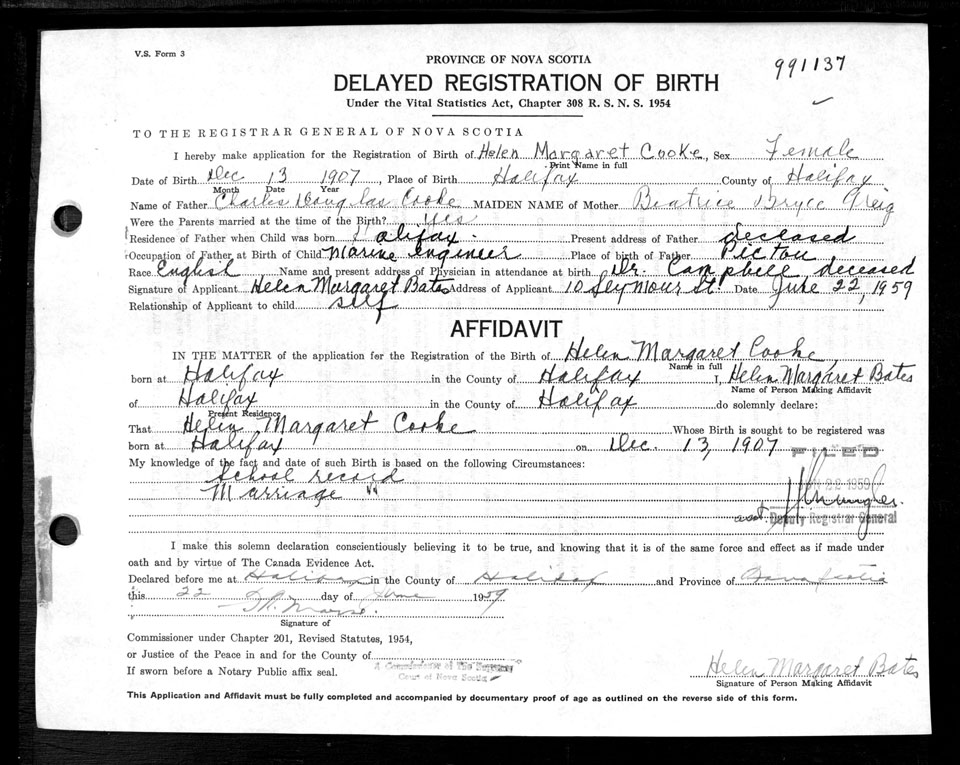 V.S. Form 3
PROVINCE OF NOVA SCOTIA
991137
DELAYED REGISTRATION OF BIRTH
Under the Vital Statistics Act, Chapter 308 R. S. N. S. 1954
TO THE REGISTRAR GENERAL OF NOVA SCOTIA
I hereby make application for the Registration of Birth of Helen Margaret Cooke, Sex Female
Print Name in full
Date of Birth Dec 13 1907, Place of Birth Halifax County of Halifax
Month Date Year
Name of Father Charles Douglas Cooke MAIDEN NAME of Mother Beatrice Bryce Greig
Were the Parents married at the time of the Birth? Yes
Residence of Father when Child was born Halifax. Present address of Father deceased
Occupation of Father at Birth of Child Marine engineer Place of birth of Father Pictou
Race English Name and present address of Physician in attendance at birth Dr. Campbell, deceased
Signature of Applicant Helen Margaret Bates Address of Applicant 10 Seymour St. Date June 22, 1959
Relationship of Applicant to child self
AFFIDAVIT
IN THE MATTER of the application for the Registration of the Birth of Helen Margaret Cooke
Name in full
born at Halifax in the County of Halifax I, Helen Margaret Bates
Name of Person Making Affidavit
of Halifax in the County of Halifax do solemnly declare:
Present Residence
That Helen Margaret Cooke Whose Birth is sought to be registered was
born at Halifax on Dec. 13, 1907
FILED
My knowledge of the fact and date of such Birth is based on the following Circumstances:
School record
Marriage "
1959
asst. Deputy Registrar General
I make this solemn declaration conscientiously believing it to be true, and knowing that it is of the same force and effect as if made under
oath and by virtue of The Canada Evidence Act.
Declared before me at Halifax in the County of Halifax and Province of Nova Scotia
this 22 day of June 1959
Signature of
Commissioner under Chapter 201, Revised Statutes, 1954,
or Justice of the Peace in and for the County of
A Commissioner of The Supreme
Court of Nova Scotia
If sworn before a Notary Public affix seal.
Helen Margaret Bates
Signature of Person Making Affidavit
This Application and Affidavit must be fully completed and accompanied by documentary proof of age as outlined on the reverse side of this form.